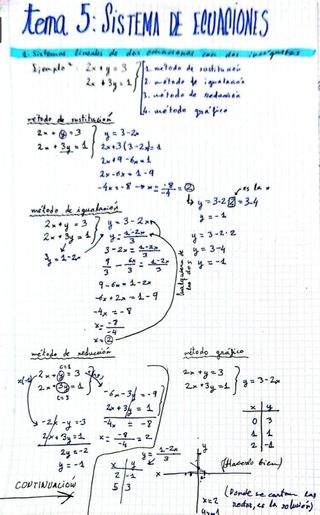 tema 5: SISTEMA DE ECUACIONES
1. Sistemas lineales de dos ecuaciones con dos incógnitas
Ejemplo: 2x + y = 3
2x + 3y = 1
1. método de sustitución
2. método de igualación
3. método de reducción
4. método gráfico
método de sustitución
2x + y = 3
2x + 3y = 1
y = 3-2x
2x+3(3-2x)=1
2x+9-6x=1
2x-6x=1-9
-4x=-8 → x = -8/-4 = 2
es la x
y = 3-2·2 = 3-4
y = -1
método de igualación
2x + y = 3
2x + 3y = 1
3y = 1-2x
y = 3-2x
y = 1-2x/3
3-2x = 1-2x/3
9/3 - 6x/3 = 1-2x/3
9-6x = 1-2x
-6x+2x = 1-9
-4x = -8
x = -8/-4
x = 2
cualquiera de las dos
y = 3-2·2
y = 3-4
y = -1
método de reducción
2x + y = 3
2x + 3y = 1
-2x - y = -3
2x + 3y = 1
2y = -2
y = -1
-6x - 3y = -9
2x + 3y = 1
-4x = -8
x = -8/-4 = 2
y = 1-2x/3
x y
2 -1
5 3
método gráfico
2x + y = 3
2x + 3y = 1
y = 3-2x
x y
0 3
1 1
2 -1
(Hacedo bien)
x=2
y=-1
(Donde se cortan las
rectas, es la solución)
CONTINUACIÓN